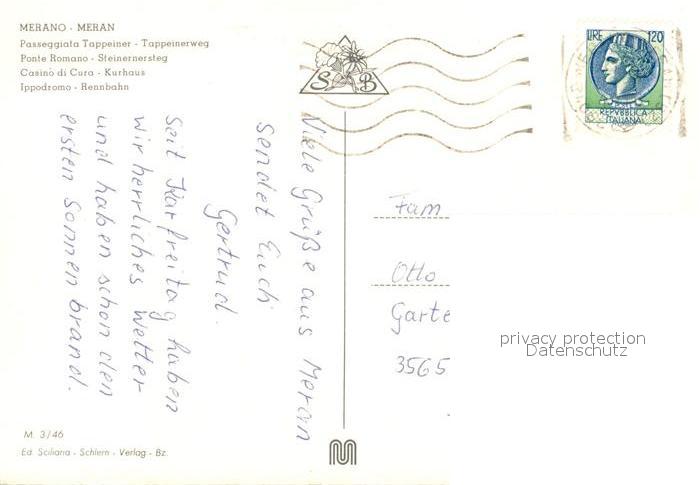 MERANO - MERAN
Passeggiata Tappeiner - Tappeinerweg
Ponte Romano - Steinernersteg
Casinò di Cura - Kurhaus
Ippodromo - Rennbahn
S B
LIRE 120
REPVBBLICA
ITALIANA
Viele Grüße aus Meran
sendet Euch
Gertrud.
Seit Karfreitag haben
wir herrliches Wetter
und haben schon den
ersten Sonnenbrand.
Fam
Otto
Garte
3565
privacy protection
Datenschutz
M. 3/46
Ed. Sciliana - Schlern - Verlag - Bz.